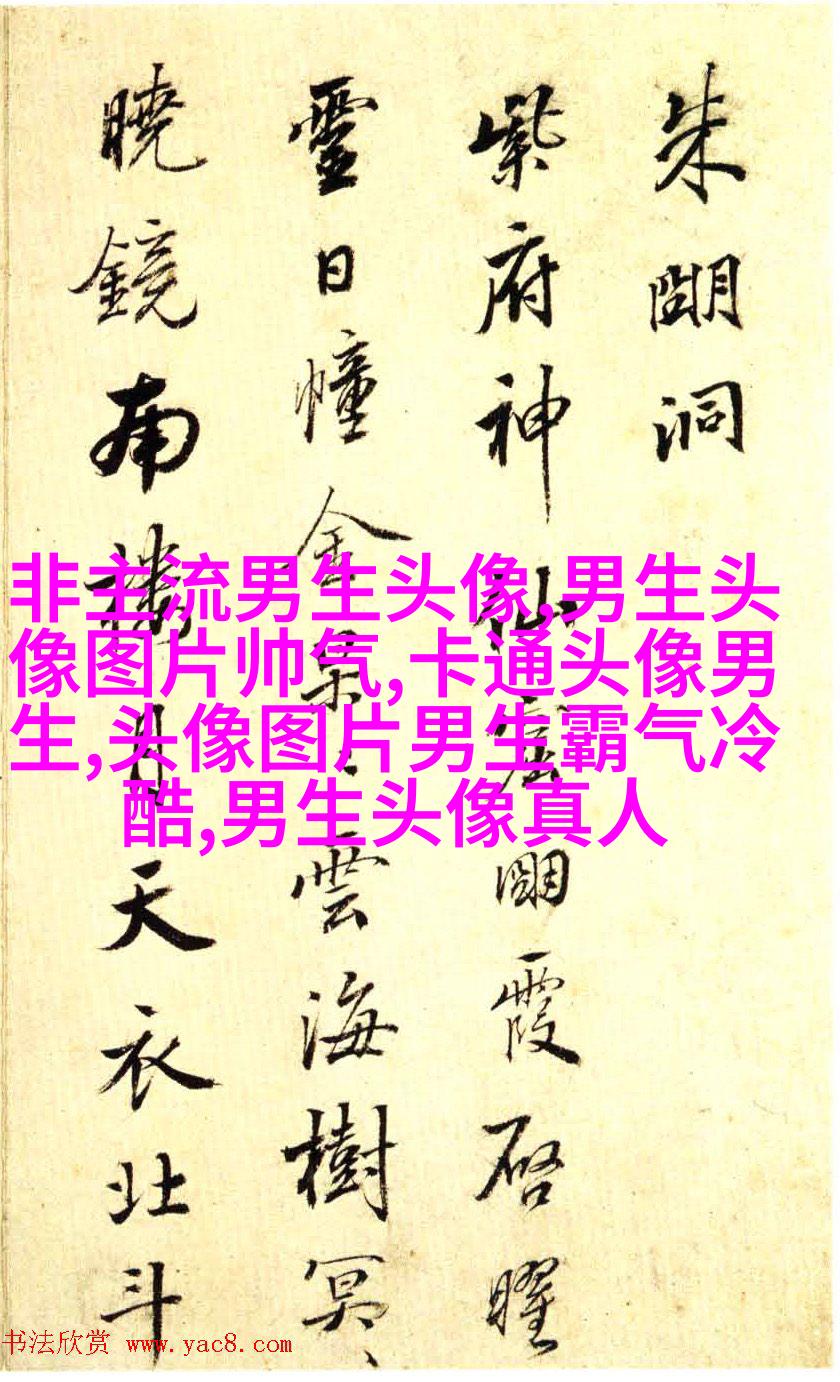 朱朙洞
紫府神仙朙霞启曜
靈日幢金景、雲海樹冥、
曉鏡南樓月天衣北斗
非主流男生头像,男生头
像图片帅气,卡通头像男
生,头像图片男生霸气冷
酷,男生头像真人
书法欣赏 www.yac8.com